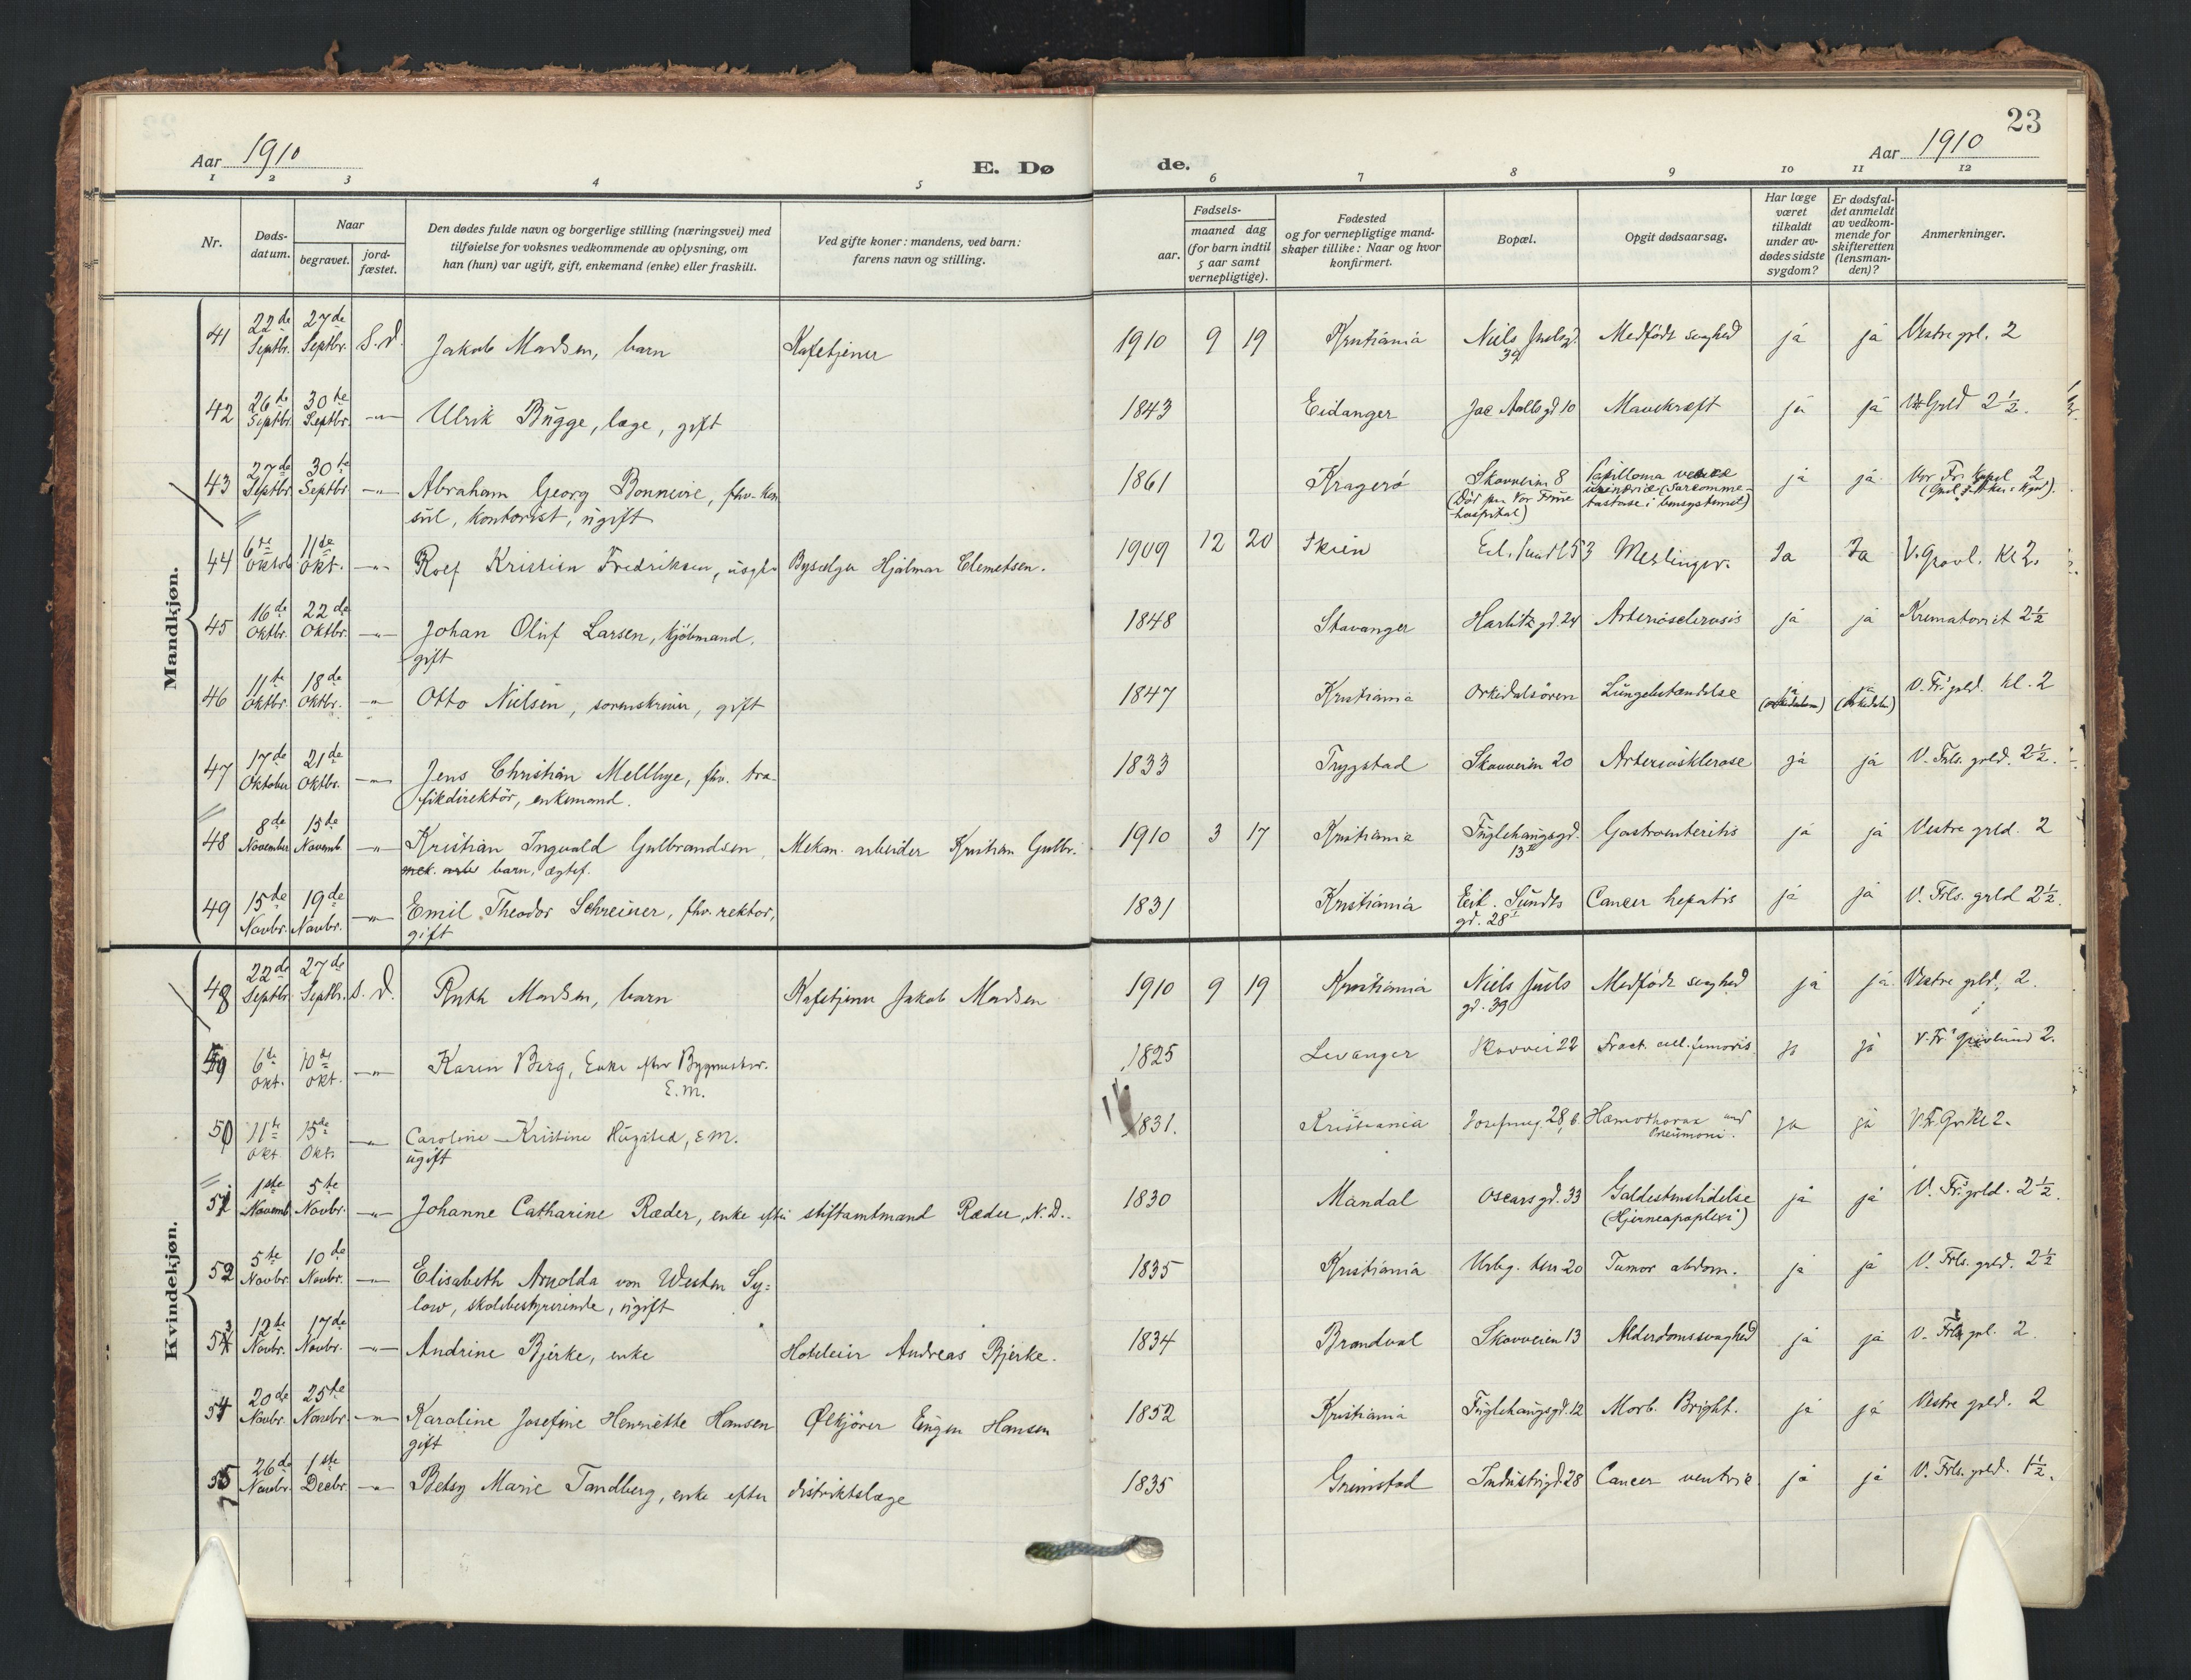 23
Aar 1910
E. Dø
de.
Aar 1910
1 2 3 4 5 6 7 8 9 10 11 12
Nr.
Døds-
datum.
Naar
begravet.
jord-
fæstet.
Den dødes fulde navn og borgerlige stilling (næringsvei) med
tilføielse for voksnes vedkommende av oplysning, om
han (hun) var ugift, gift, enkemand (enke) eller fraskilt.
Ved gifte koner: mandens, ved barn:
farens navn og stilling.
Fødsels-
aar.
maaned dag
(for barn indtil
5 aar samt
vernepligtige).
Fødested
og for vernepligtige mand-
skaper tillike: Naar og hvor
konfirmert.
Bopæl.
Opgit dødsaarsag.
Har læge
været
tilkaldt
under av-
dødes sidste
sygdom?
Er dødsfal-
det anmeldt
av vedkom-
mende for
skifteretten
(lensman-
den)?
Anmerkninger.
Mandkjøn.
41 22de Septbr. 27de Septbr. S. d. Jakob Madsen, barn Kafetjener 1910 9 19 Kristiania Niels Juelsgd. 39 Medfødt svaghed ja ja Vestre grl. 2
42 26de Septbr. 30te Septbr. -"- Ulrik Bugge, læge, gift 1843 Eidanger Jac Aallsgd 10 Mavekræft ja ja Grld 2½.
43 27de Septbr 30te Septbr -"- Abraham Georg Bonnevie, fhv. kon
sul, kontorist, ugift 1861 Kragerø Skovveien 8
(Död paa Vor Frue
hospital) Papilloma (Sarcomme-
tastase i bensystemet) ja ja Vor Fr. kapel 2
44 6te Oktob 11de Okt. -"- Rolf Kristian Fredriksen, Bysælger Hjalmar Clemetsen. 1909 12 20 Skien Eil. Sundt 53 Meslinger. Ja Ja V. Gravl. Kl 2.
45 16de Oktbr. 22de Oktbr. -"- Johan Oluf Larsen, kjöbmand.
gift 1848 Stavanger Harbitzgd. 24 Arteriosclerosis ja ja Krematoriet 2½
46 11te Oktbr. 18de Oktbr. -"- Otto Nielsen, sorenskriver, gift 1847 Kristiania Orkedalsören Lungebetændelse ja (Orkedalen) ja (Orkedalen) V. Fr. grld. kl. 2
47 17de Oktober 21de Oktbr. -"- Jens Christian Mellbye, fhv. tra-
fikdirektör, enkemand. 1833 Trygstad Skovveien 20 Arteriosklerose ja ja V. Frls. grld. 2½.
48 8de November 15de Novemb -"- Kristian Ingvald Gulbrandsen,
mek. arbe barn, ægtef. Mekan. arbeider Kristian Gulbr. 1910 3 17 Kristiania Fuglehaugsgd. 13 Gastroenteritis ja ja Vestre grld. 2
49 15de Novbr. 19de Novbr. -"- Emil Theodor Schreiner, fhv. rektor,
gift 1831 Kristiania Eil. Sundts
gd. 28 Cancer hepatis ja ja V. Frls. grld 2½.
Kvindekjøn.
48 22de Septbr. 27de Septbr. S. d. Ruth Madsen, barn Kafetjener Jakob Madsen 1910 9 19 Kristiania Niels Juels
gd. 39 Medfødt svaghed ja ja Vestre grld. 2.
49 6te Okt. 10de Okt. -"- Karen Berg, Enke efter Bygmester.
E.M. 1825 Levanger Skovvei 22 Fract. coll. femoris ja ja V. Fr. Gravlund 2.
50 11te Okt. 15de Okt. -"- Caroline Kristine Huzsted, E.M.
ugift 1831. Kristiania Josefineg. 28, 6. Hæmothorax med
Pneumoni. ja ja V. Fr. Gr. Kl 2.
51 1ste Novemb 5te Novbr. -"- Johanne Catharine Ræder, enke efter stiftamtmand Ræder, N.D. 1830 Mandal Oscarsgd. 33 Galdestenslidelse
(Hjerneapoplexi) ja ja V. Fr. grld. 2½.
52 5te Novbr. 10de Novbr. -"- Elisabeth Arnolda von Westen Sy-
low, skolebestyrerinde, ugift 1835 Kristiania Urbg. ter 20 Tumor abdom. ja ja V. Frls. grld. 2½
53 12te Novbr. 17de Novbr. -"- Andrine Bjerke, enke Hoteleier Andreas Bjerke. 1834 Brandval Skovveien 13 Alderdomssvaghed ja ja V. Frls grl. 2.
54 20de Novbr. 25te Novbr -"- Karoline Josefine Henriette Hansen
gift Ølkjörer Eugen Hansen 1852 Kristiania Fuglehaugsgd. 12 Morb. Bright. ja ja Vestre grld. 2
55 26de Novbr. 1ste Decbr. -"- Betsy Marie Tandberg, enke efter distriktslæge 1835 Grimstad Industrigd. 28 Cancer ventric ja ja V. Frls. grld. 1½.